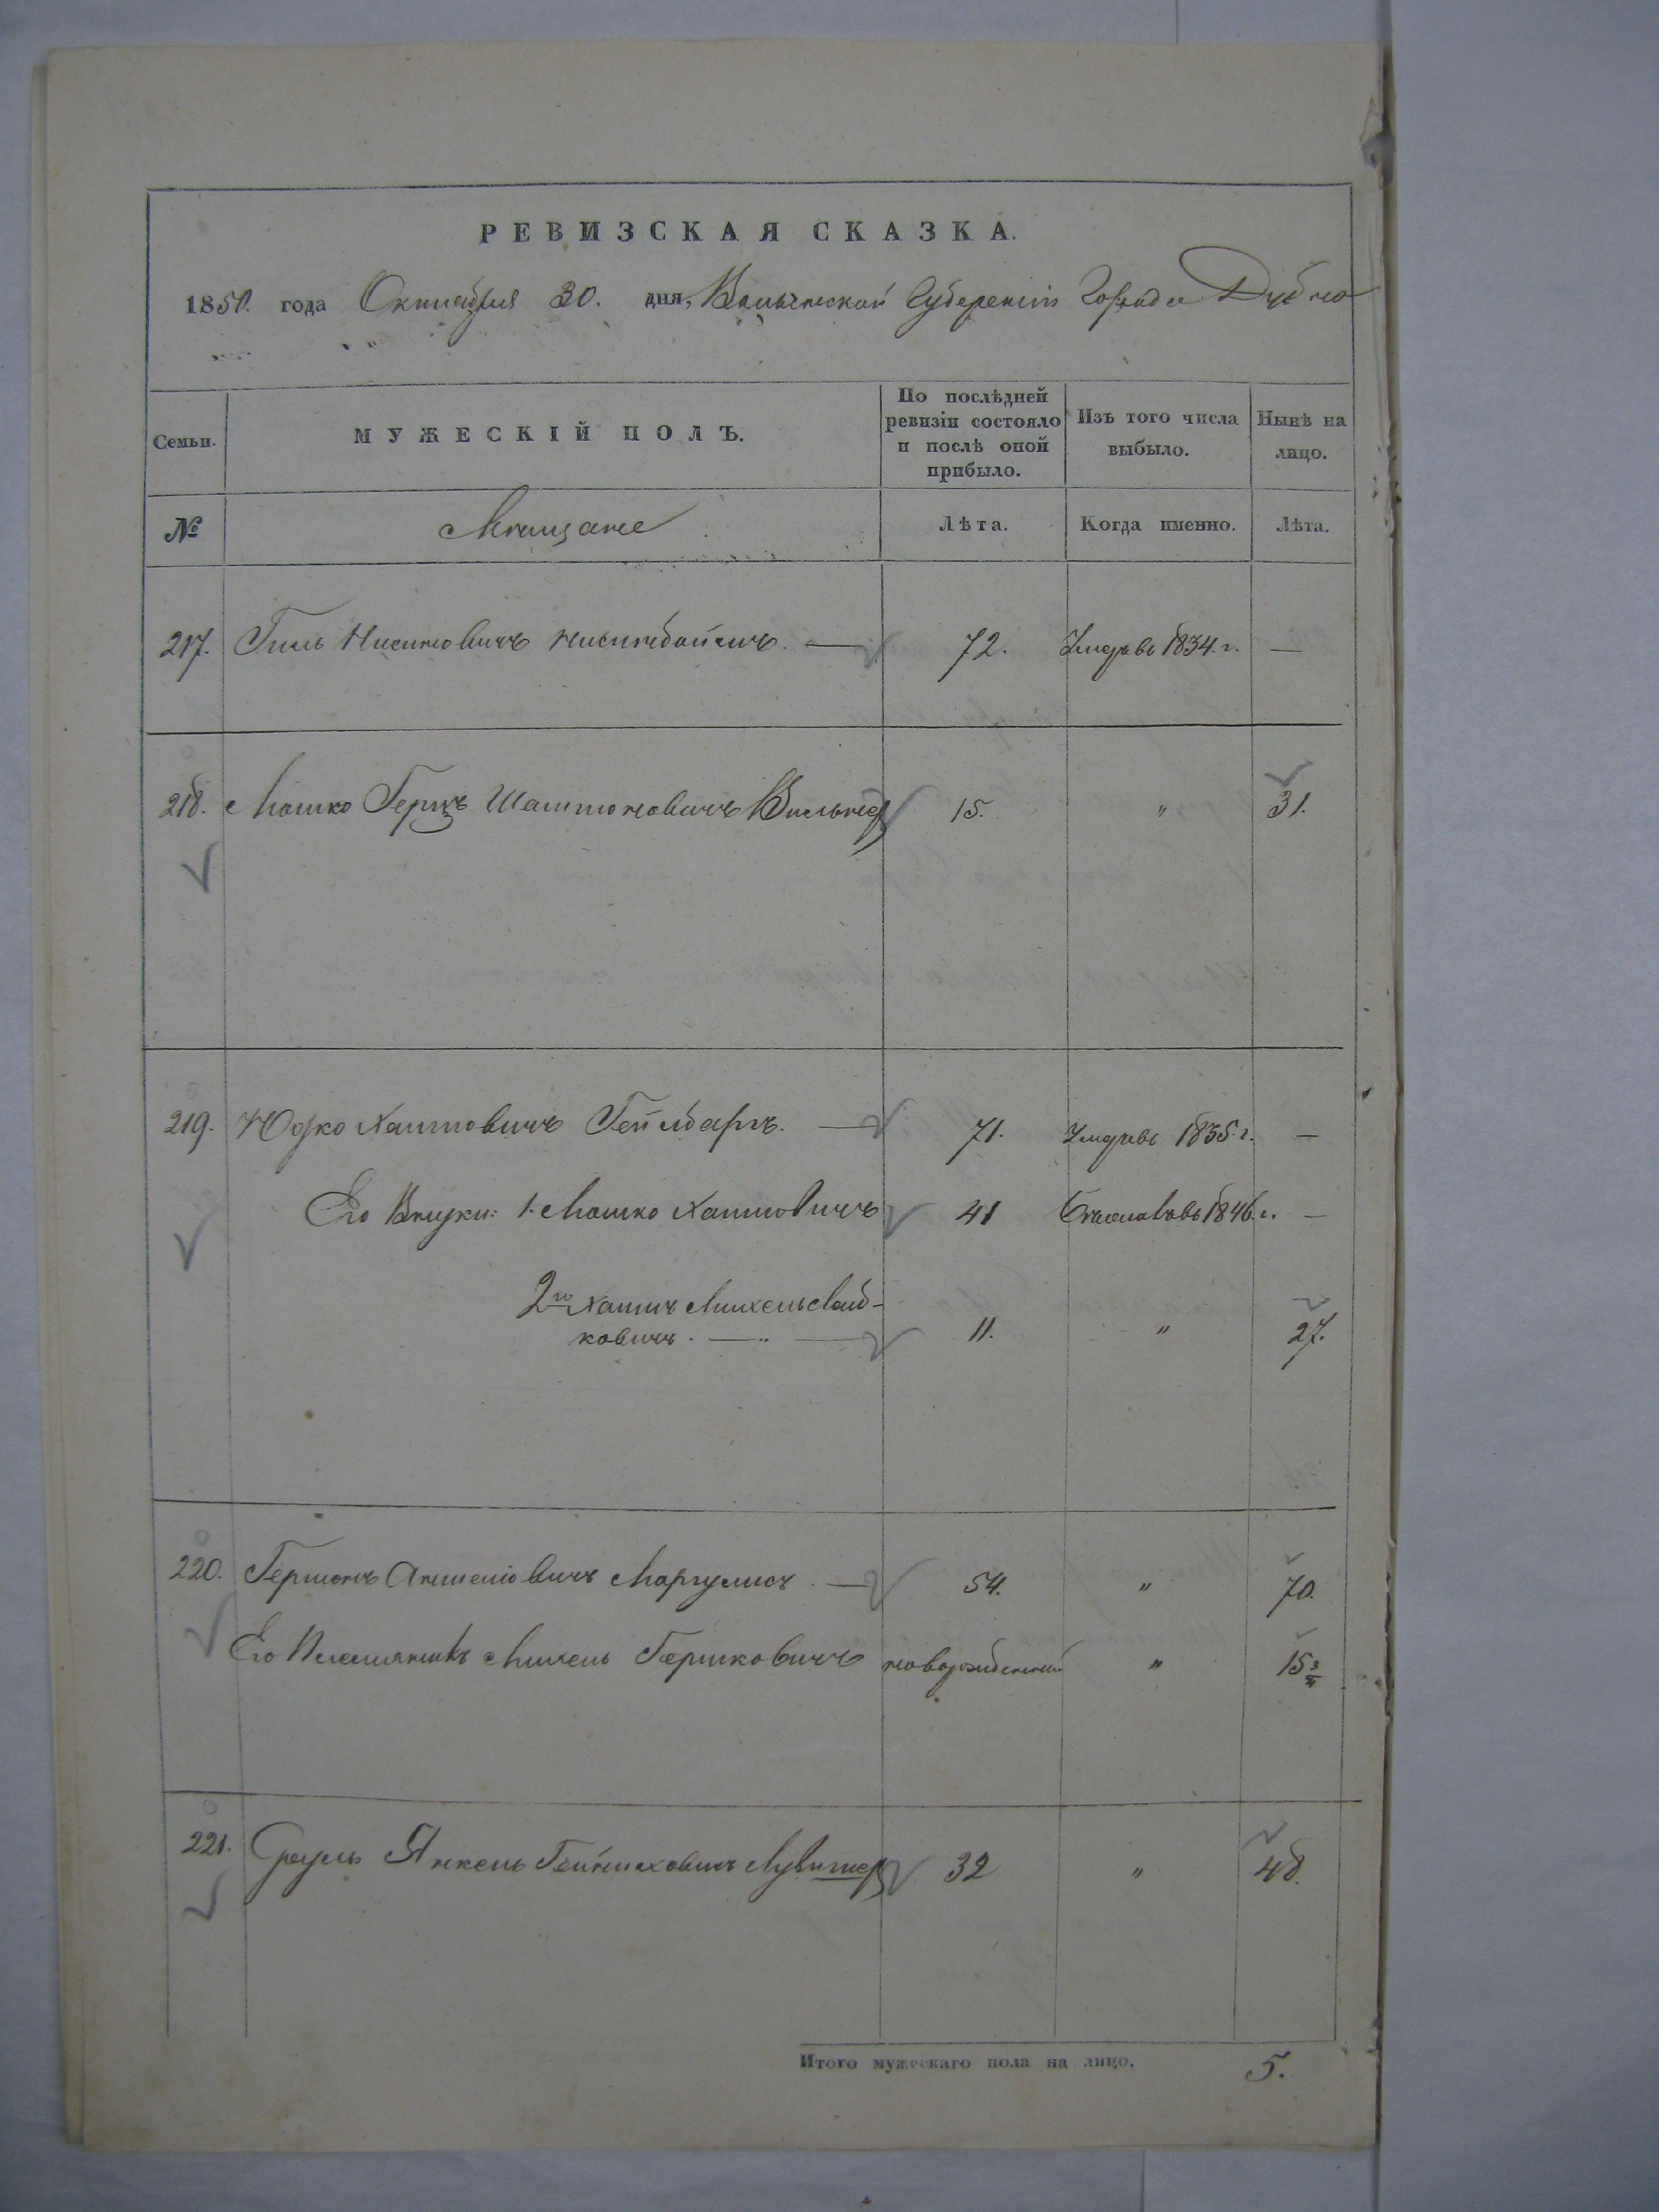 РЕВИЗСКАЯ СКАЗКА.
1850. года Октября 30. дня, Волынской Губернии Города Дубно
Семьи. МУЖЕСКІЙ ПОЛЪ. По послѣдней ревизіи состояло и послѣ оной прибыло. Изъ того числа выбыло. Нынѣ на лицо.
№ Мещане Лѣта. Когда именно. Лѣта.
217. Гиль Нисиновичъ Нисинбоймъ. — 72. Умеръ въ 1834. г. —
218. Мошко Герцъ 15. " 31.
219. Юдко Хаимовичъ — 71. Умеръ въ 1835. г. —
Его Внуки: 1. Мошко Хаимовичъ 41 1846. г. —
2й Хаимъ Михель Лейб-
ковичъ. — " — 11. " 27.
220. Гершонъ Аншеліовичъ Маргулисъ. — 54. " 70.
Его Племянникъ Михель Гершковичъ новорожденный " 15 3/4
221. Янкель 32 " 48.
Итого мужескаго пола на лицо. 5.